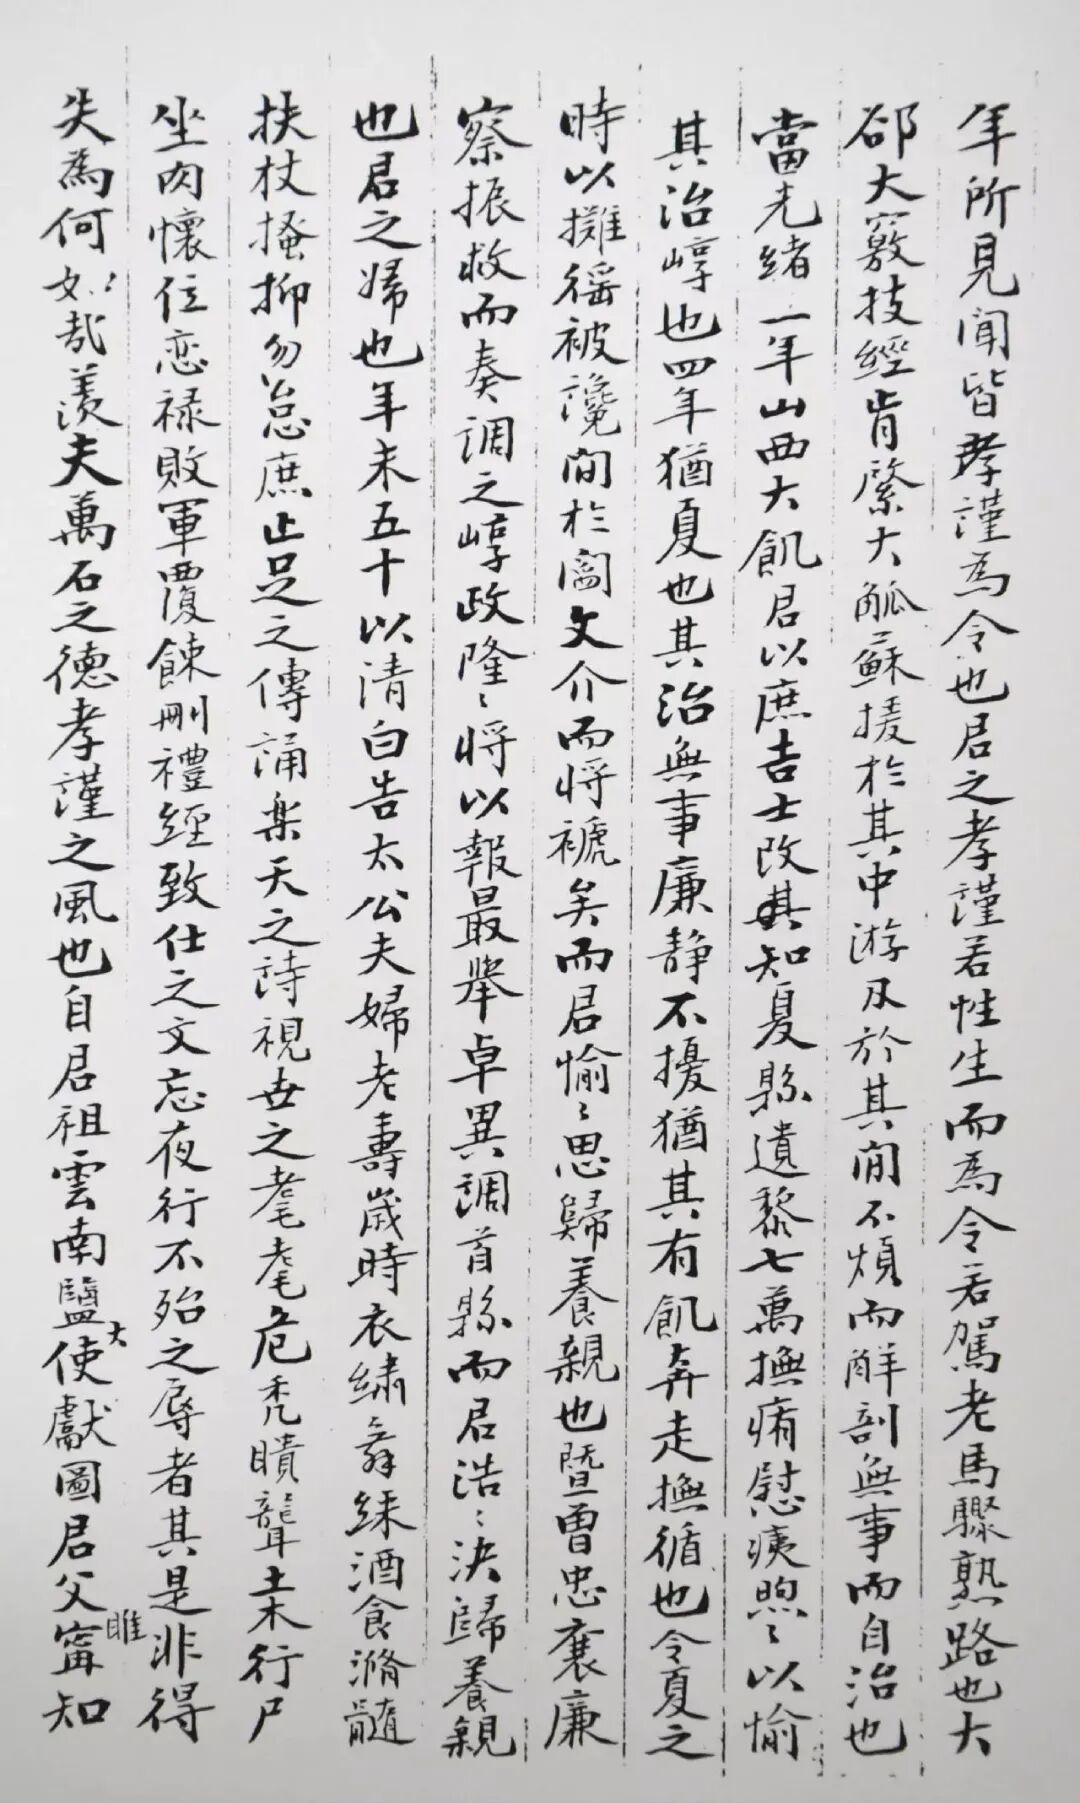 年所見聞皆孝謹為令也君之孝謹若性生而為令若駕老馬驟熟路也大
郤大窾技經肯綮大觚蘇援於其中游刃於其閒不煩而解剖無事而自治也
當光緒一年山西大飢君以庶吉士改其知夏縣遺黎七萬撫痏慰痍煦〻以愉
其治崞也四年猶夏也其治無事廉静不擾猶其有飢奔走撫循也令夏之
時以攤徭被讒間於閻文介而将褫矣而君愉〻思歸養親也暨曾忠襄廉
察振救而奏調之崞政隆〻将以報最舉卓異調首縣而君浩〻決歸養親
也君之婦也年未五十以清白告太公夫婦老壽歲時衣繡舞綵酒食滫髓
扶杖搔抑勿怠庶止足之傳誦樂天之詩視世之耄耄危秃瞶聾土木行尸
坐肉懷位恋禄敗軍覆餗刪禮經致仕之文忘夜行不殆之辱者其是非得
失為何如哉羡夫萬石之德孝謹之風也自君祖雲南鹽大使獻圖君父甯雎知